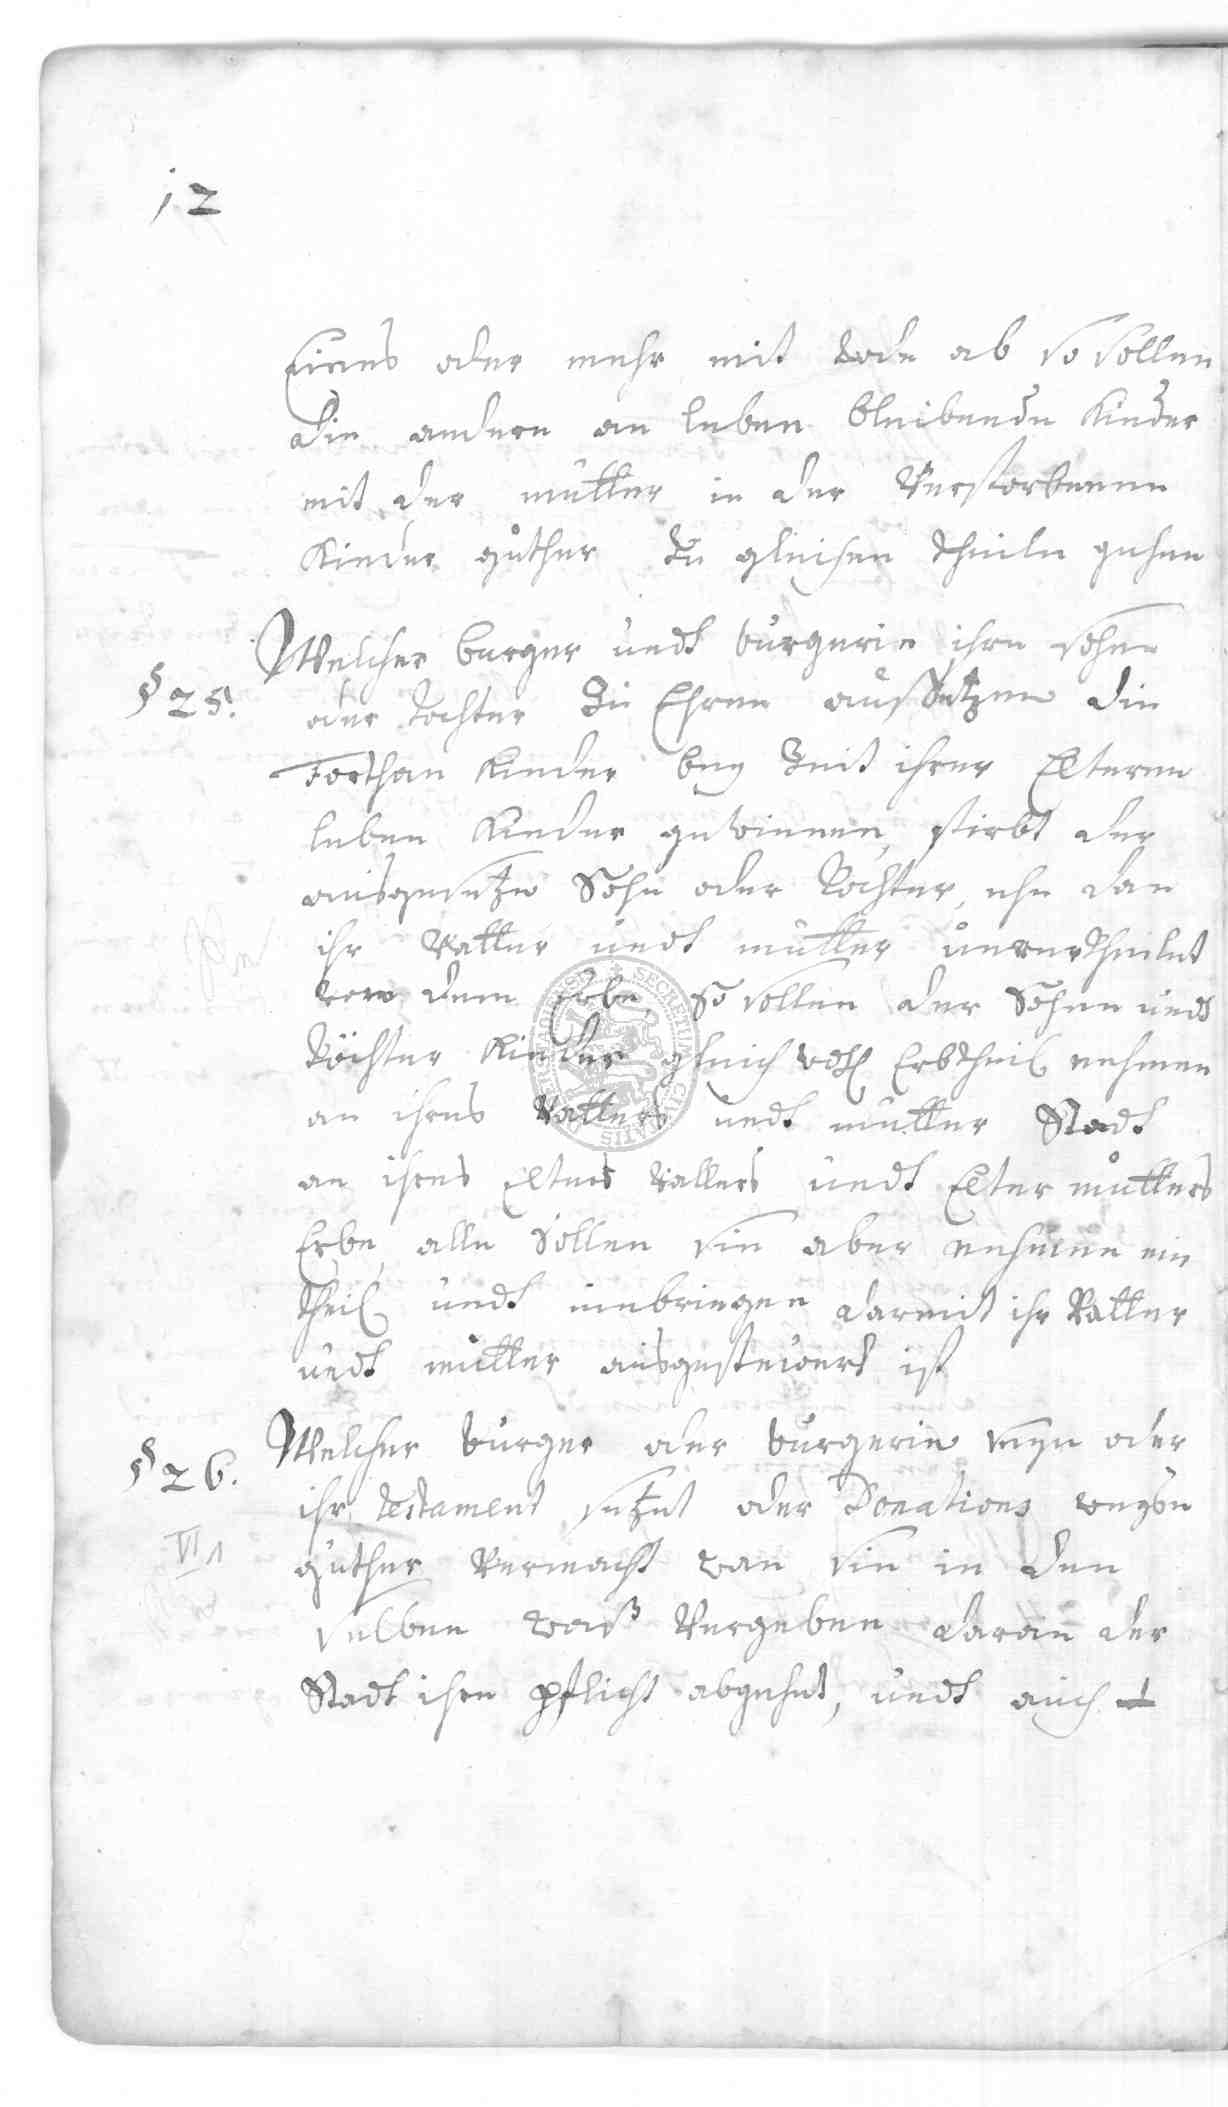 12
Eines oder mehr mit tode ab so sollen
die andern an leben bleibende Kinder
mit der mutter in der Verstorbenen
Kinder guther zu gleichen theilen gehen
§ 25.
Welcher burger undt burgerin ihre sohn
oder Tochter zu Ehren ausSetzen die
Forthan Kinder bey Zeit ihrer Elteren
leben Kinder gewinnen, stirbt der
ausgesetze Sohn oder Tochter, ehe dan
ihr Vatter undt mutter unvertheilet
von dem Erbe, So sollen der Sohne undt
Töchter Kinder gleich wohl Erbtheil nehmen
an ihres Vatters undt mutter Stadt
an ihres Elters Vatters undt Elter mutters
Erbe, alle Sollen sie aber nehmen ein
theil undt inbringen darmit ihr Vatter
undt mutter ausgesteuert ist
§ 26.
VI 1
Welcher burger oder burgerin seyn oder
ihr testament setzet oder Donations weyse
guther Vermacht wan sie in den
selben was Vergeben daran der
Stadt ihre pflicht abgehet, undt auch
SECRETUM CIVITATIS